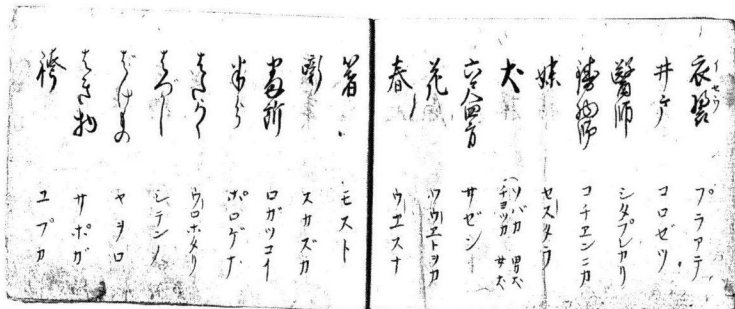 衣裳 イセウ プラアテ
井戸 コロゼツ
醫師 シタプレカリ
鋳物師 コチエンニカ
妹 セスタラ
犬 ソバカ 男犬 チヨツカ 女犬
六尺四方 サゼン
花 ツウエトヲカ
春 ウエスナ
箸 モスト
噺 スカズカ
ロガツコイ
ポロゲナ
はたらく ウロボタリ
はづし シテンノ
ばけもの ヤヲロ
はき物 サポガ
袴 ユプカ